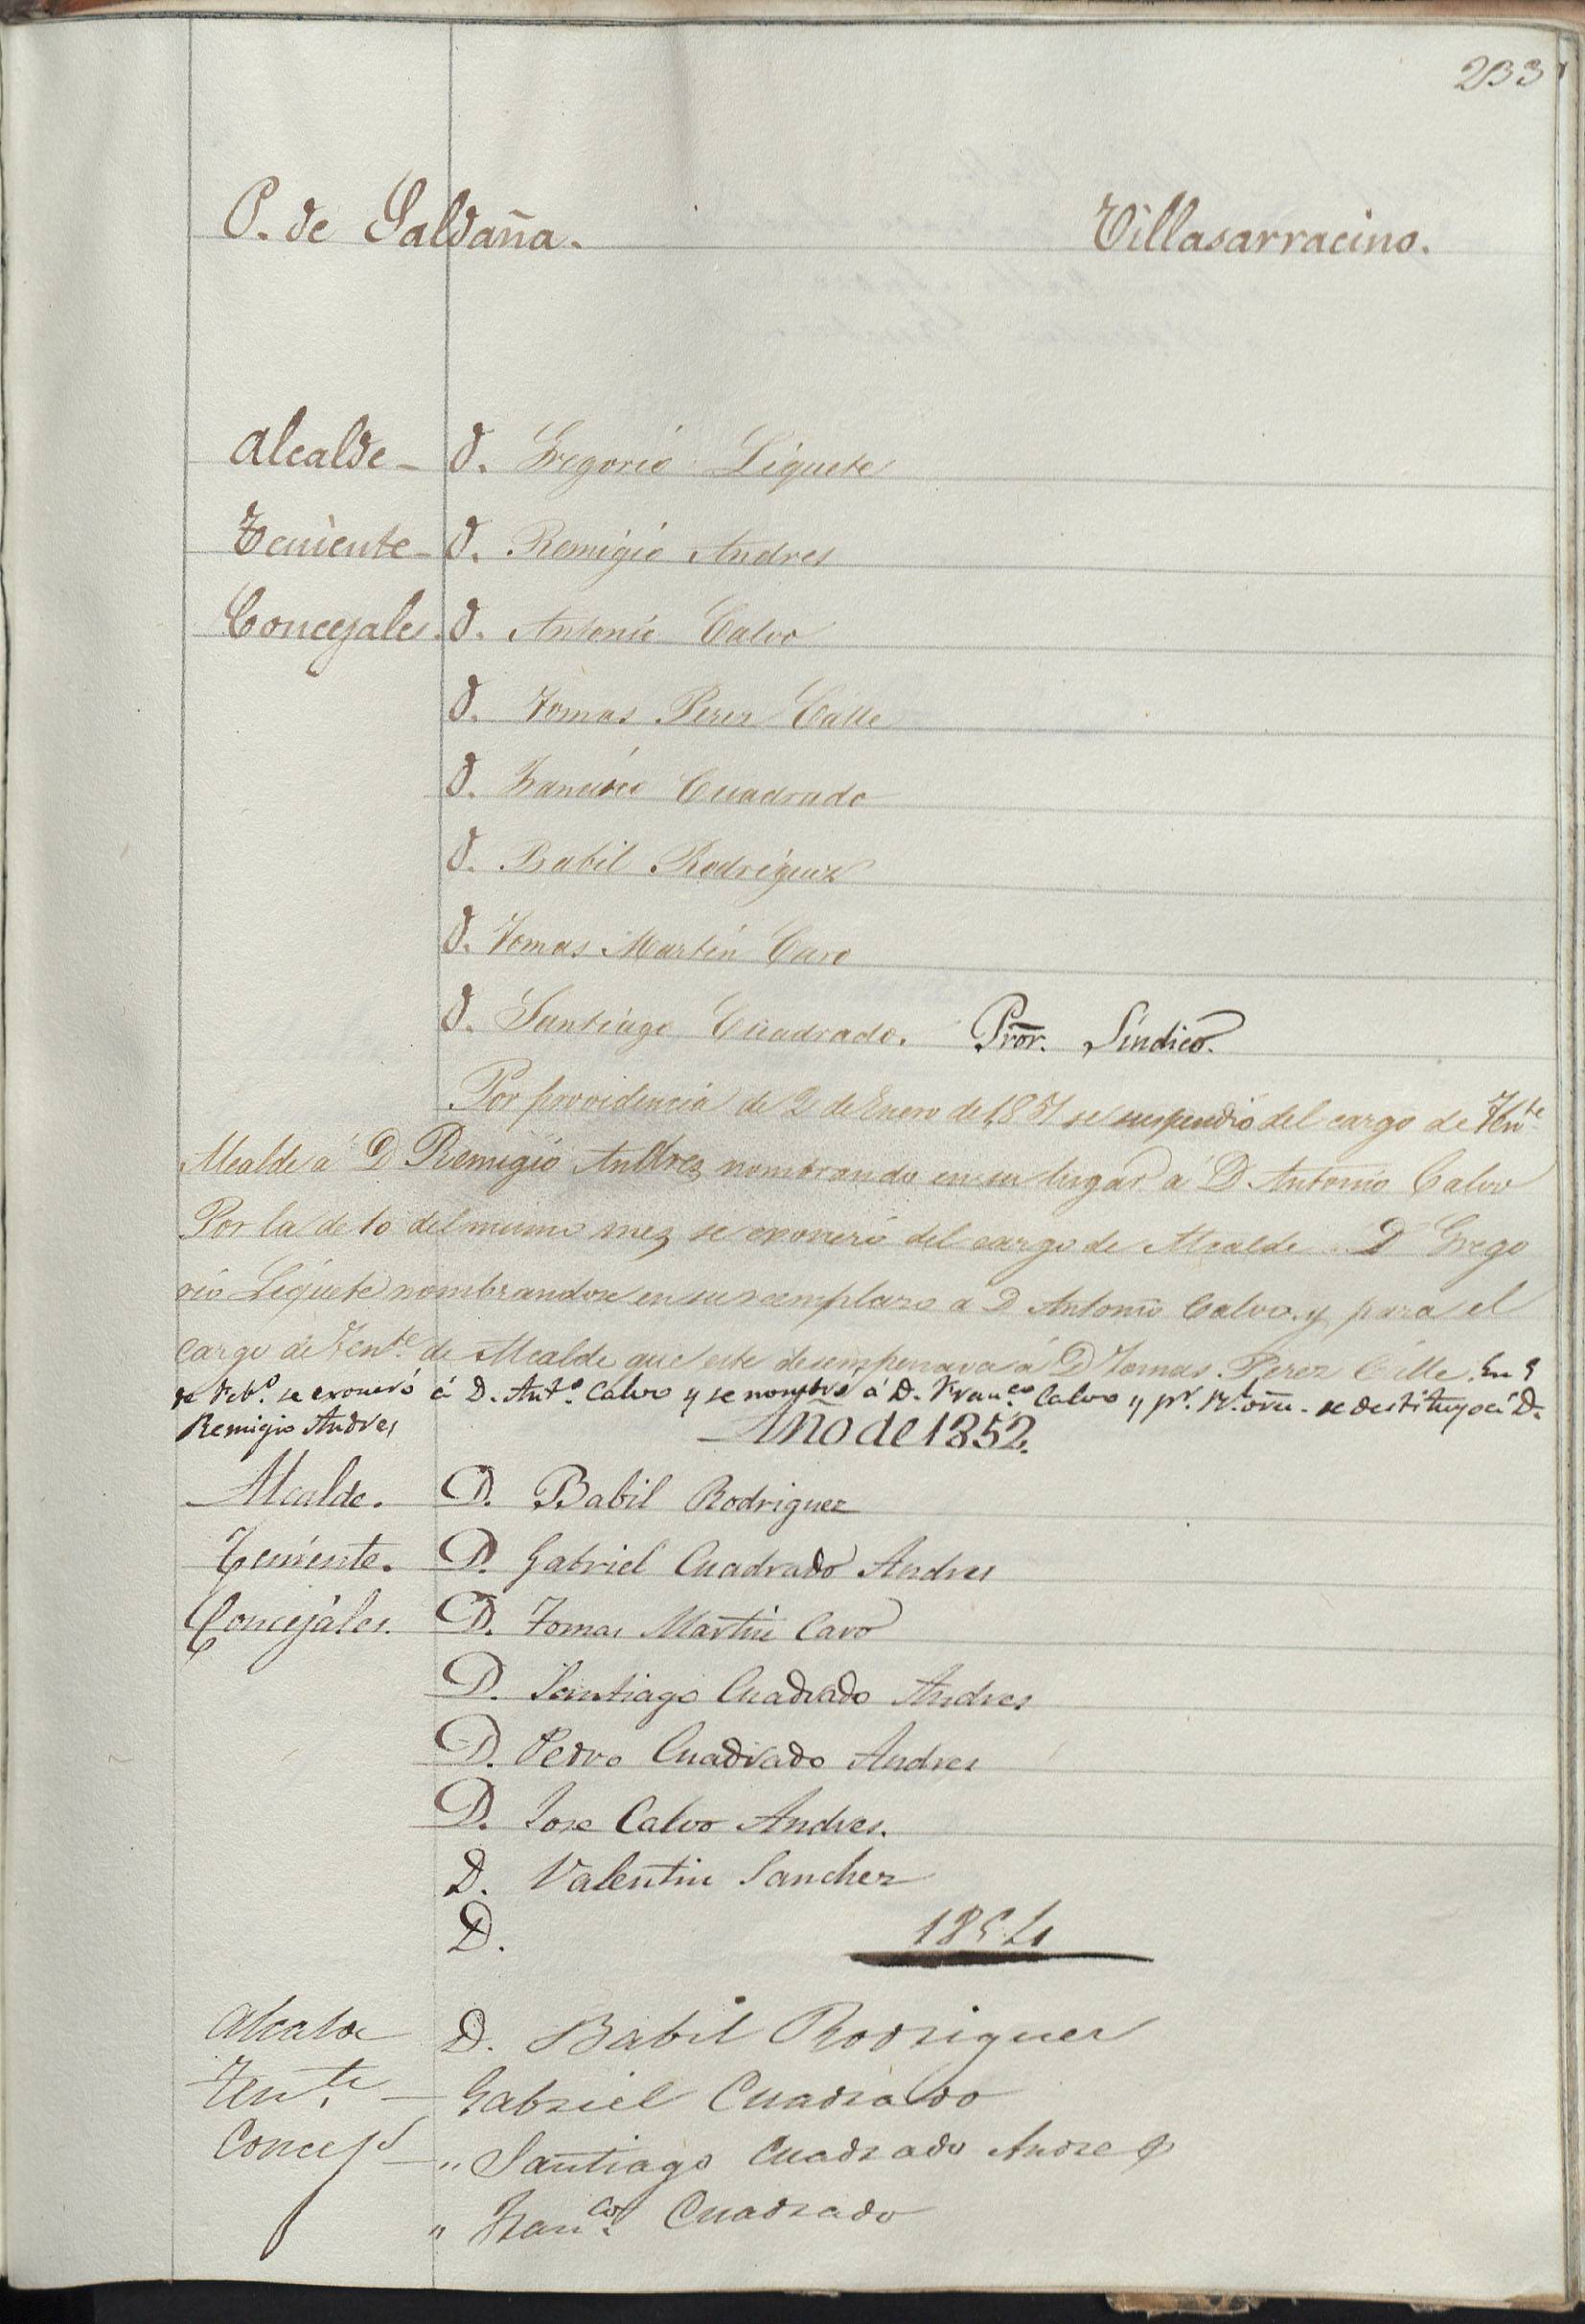 233
P. de Saldaña. Villasarracino.
Alcalde - D. Gregorio Liquete
Teniente - D. Remigio Andres
Concejales. D. Antonio Calvo
D. Tomas Perez Calle
D. Francisco Cuadrado
D. Babil Rodriguez
D. Tomas Martin Caro
D. Santiago Cuadrado. Pror. Sindico.
Por providencia de 2 de Enero de 1,851 se suspendió del cargo de Tente
Alcalde a D Remigio Andres nombrando en su lugar a D Antonio Calvo
Por la de 10 del mismo mes se exoneró del cargo de Alcalde D Grego
rio Liquete nombrandose en su reemplazo a D Antonio Calvo. y para el
cargo de Tente. de Alcalde que este desempeñava á D Tomas Perez Calle. En 9
de Febo. se exoneró á D. Anto. Calvo y se nombró á D. Franco. Calvo y pr. Rl. orn. se destituyo á D.
Remigio Andres
Año de 1852.
Alcalde. D. Babil Rodriguez
Teniente. D. Gabriel Cuadrado Andres
Concejales. D. Tomas Martin Caro
D. Santiago Cuadrado Andres
D. Pedro Cuadrado Andres
D. Jose Calvo Andres.
D. Valentin Sanchez
D.
1854
Alcalde D. Babil Rodriguez
Tente. - Gabriel Cuadrado
Concejs - " Santiago Cuadrado Andres
" Franco. Cuadrado